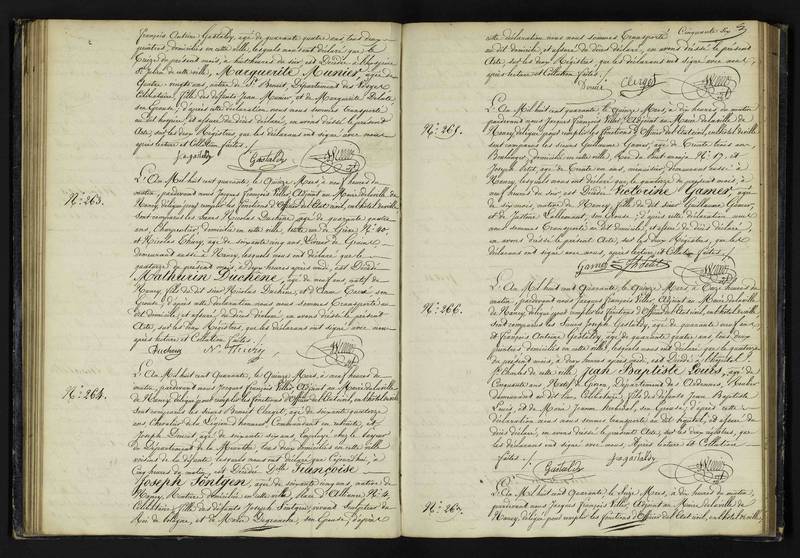 François Antoine Gastaldy, âgé de quarante quatre ans, tous deux
peintres, domiciliés en cette ville, lesquels nous ont déclaré que le
de cette ville, Marguerite Munier, âgée de
quatre vingt ans, native de St. Benoit, Département des Vosges
Célibataire, fille des défunts Jean Munier, et de Marguerite
son épouse; d'après cette déclaration nous nous sommes transporté
au dit hospice, et assuré du décès déclaré, en avons dressé le présent
Acte, sur les deux Registres, que les déclarants ont signé avec nous
après lecture et Collation faites.
Jagastaldy Gastaldy
N.° 263.
L'An Mil huit cent quarante, le Quinze Mars, à neuf heures du
matin, pardevant nous Jacques François Villez, Adjoint au Maire de la ville de
Nancy, délégué pour remplir les fonctions d'Officier de l'état civil, en l'hôtel de ville
Sont comparus les Sieurs Nicolas Duchène, âgé de quarante quatre
ans, Charpentier, domicilié en cette ville, N.° 40
et Nicolas Thiry, âgé de soixante cinq ans,
demeurant aussi à Nancy, lesquels nous ont déclaré que le
quatorze du présent mois, à deux heures après midi, est Décédé
Mathurin Duchène, âgé de neuf ans, natif de
Nancy, fils du dit Sieur Nicolas Duchène, et d'Anne son
épouse; d'après cette déclaration nous nous sommes transporté au
dit domicile, et assuré du décès déclaré, en avons dressé le présent
Acte, sur les deux Registres, que les déclarants ont signé avec nous
après lecture et Collation faites.
Duchene N. Thiery
N.° 264.
L'An Mil huit cent Quarante, le Quinze Mars, à neuf heures du
matin, pardevant nous Jacques François Villez, Adjoint au Maire de la ville
de Nancy, délégué pour remplir les fonctions d'Officier de l'état civil, en l'hôtel de ville
Sont comparus les Sieurs Benoit Clerget, âgé de soixante quatorze
ans, Chevalier de la Légion d'honneur, Commandant en retraite, et
Joseph âgé de soixante six ans, Employé chez le Payeur
du Département de la Meurthe, tous deux domiciliés en cette ville
voisins de la défunte, lesquels nous ont déclaré que Cejourd'hui, à
Cinq heures du matin, est Décédée D.lle Françoise
Joseph Söntgen, âgée de soixante cinq ans, native de
Nancy, Rentière domiciliée en cette ville, place d'Alliance N.° 4,
Célibataire, fille des défunts Joseph Söntgen, vivant Sculpteur du
Roi de Pologne, et de Marie son épouse, d'après
cette déclaration nous nous sommes transporté Cinquante six
au dit domicile, et assuré du décès déclaré, en avons dressé le présent
Acte, sur les deux Registres, que les déclarants ont signé avec nous
après lecture et Collation faites.
Clerget
N.° 265.
L'An Mil huit cent quarante, le quinze Mars, à dix heures du matin
pardevant nous Jacques François Villez, Adjoint au Maire de la ville de
Nancy, délégué pour remplir les fonctions d'Officier de l'état civil, en l'hôtel de ville
sont comparus les sieurs Guillaume Gamer, âgé de trente trois ans,
Boulanger, domicilié en cette ville, Rue du Pont N.° 17, et
Joseph âgé de trente un ans, menuisier, demeurant aussi à
Nancy, lesquels nous ont déclaré que le quatorze du présent mois, à
neuf heures du soir, est Décédée Victorine Gamer, âgée
de six mois, native de Nancy, fille du dit sieur Guillaume Gamer,
et de Justine Lallemant, son épouse; d'après cette déclaration nous
nous sommes transporté au dit domicile, et assuré du décès déclaré,
en avons dressé le présent Acte, sur les deux Registres, que les
déclarants ont signé avec nous, après lecture et Collation faites.
Gamer
N.° 266.
L'An Mil huit cent Quarante, le Quinze Mars, à Cinq heures du
matin, pardevant nous Jacques François Villez, Adjoint au Maire de la ville
de Nancy, délégué pour remplir les fonctions d'Officier de l'état civil, en l'hôtel de ville
sont comparus les Sieurs Joseph Gastaldy, âgé de quarante neuf ans
et François Antoine Gastaldy, âgé de quarante quatre ans, tous deux
peintres domiciliés en cette ville, lesquels nous ont déclaré que le quatorze
du présent mois, à deux heures après midi, est Décédé à l'hôpital St.
Charles de cette ville, Jean Baptiste Louis, âgé de
Cinquante ans, Natif de Givron, Département des Ardennes,
demeurant au dit lieu, Célibataire, fils des défunts Jean Baptiste
Louis, et de Marie Jeanne son épouse; d'après cette
déclaration nous nous sommes transporté au dit hôpital, et assuré du
décès déclaré, en avons dressé le présent Acte, sur les deux registres, que
les déclarants ont signé avec nous, Après lecture et Collation
faites.
Gastaldy Jagastaldy
N.° 267.
L'An Mil huit cent Quarante, le Seize Mars, à dix heures du matin,
pardevant nous Jacques François Villez, Adjoint au Maire de la ville de
Nancy, délégué pour remplir les fonctions d'Officier de l'état civil, en l'hôtel de ville,